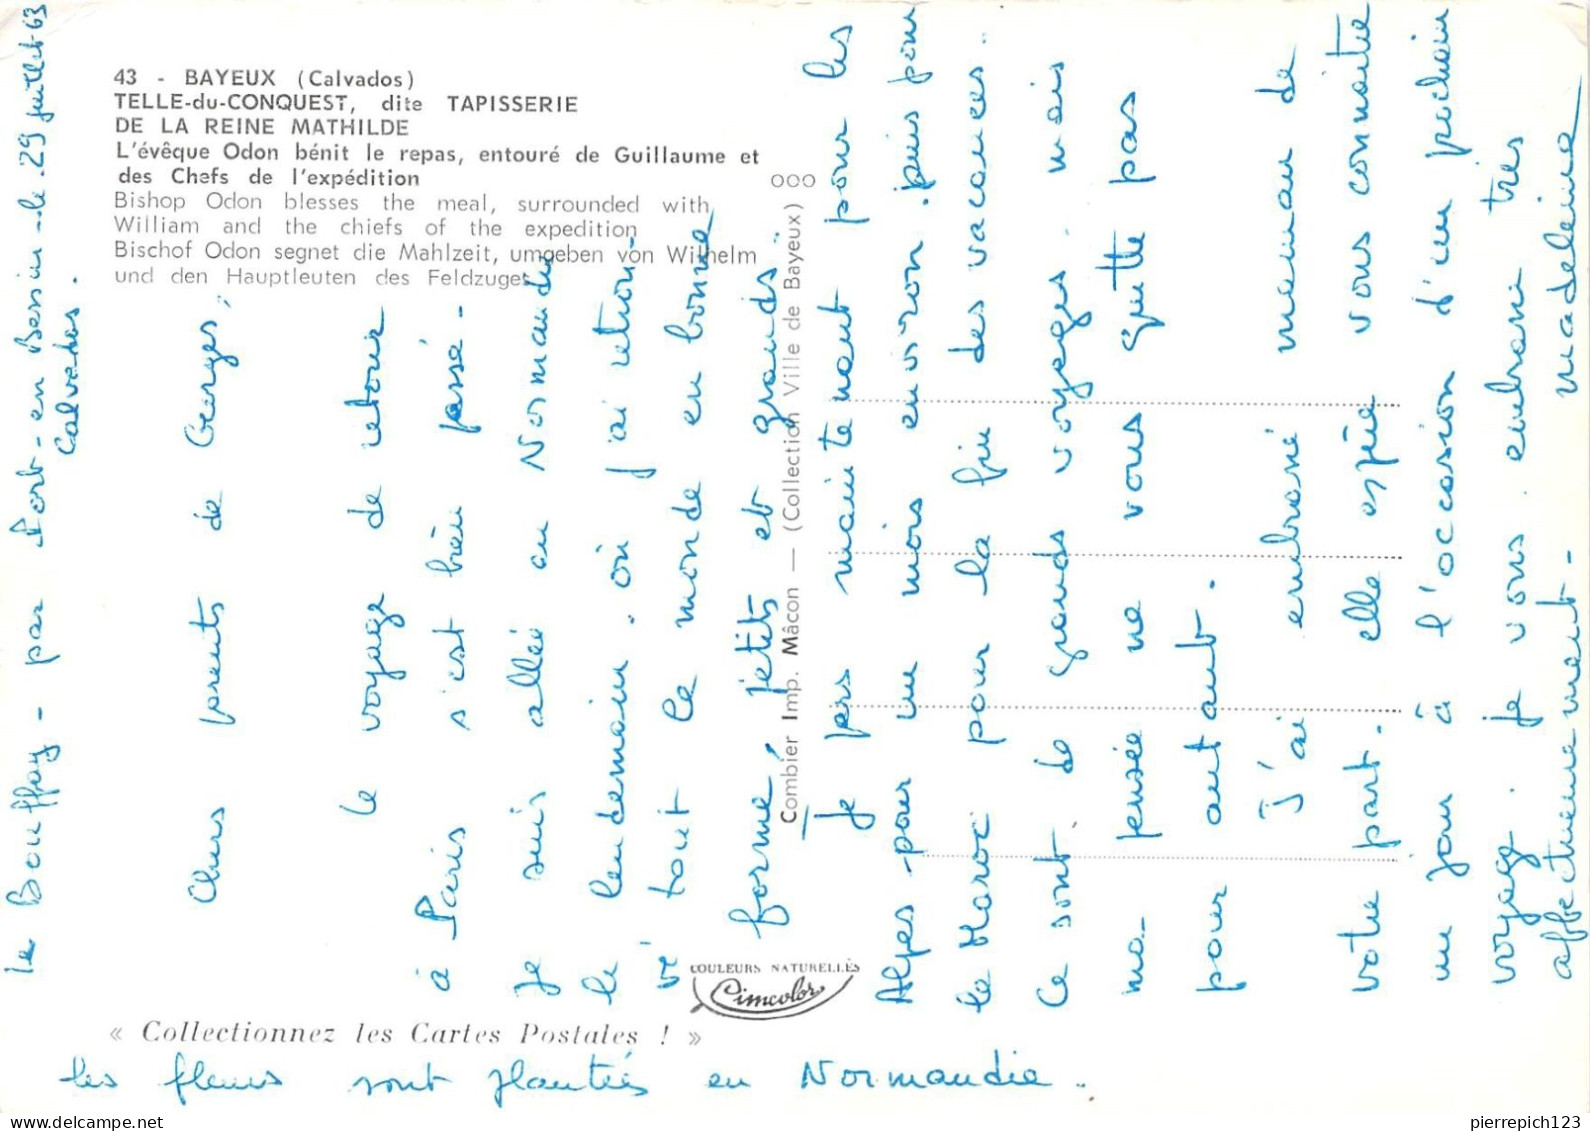 43 - BAYEUX (Calvados)
TELLE-du-CONQUEST, dite TAPISSERIE
DE LA REINE MATHILDE
L'évêque Odon bénit le repas, entouré de Guillaume et
des Chefs de l'expédition
Bishop Odon blesses the meal, surrounded with
William and the chiefs of the expedition
Bischof Odon segnet die Mahlzeit, umgeben von Wilhelm
und den Hauptleuten des Feldzuges
ooo
Combier Imp. Mâcon — (Collection Ville de Bayeux)
COULEURS NATURELLES
Cimcolor
« Collectionnez les Cartes Postales ! »
le Bouffay - par Port-en Bessin - le 29 juillet 63
Calvados.
Chers parents de Georges,
le voyage de retour
à Paris s'est bien passé -
Je suis allée en Normandie
le lendemain. où j'ai retrou-
vé tout le monde en bonne
forme, petits et grands
Je pars maintenant pour les
Alpes - pour un mois environ. puis pour
le Maroc pour la fin des vacances.
Ce sont de grands voyages. mais
ma pensée ne vous quitte pas
pour autant.
J'ai embrassé maman de
votre part. elle espère vous connaitre
un jour à l'occasion d'un prochain
voyage. Je vous embrasse très
affectueusement - Madeleine
les fleurs sont plantées en Normandie.
pierrepich123